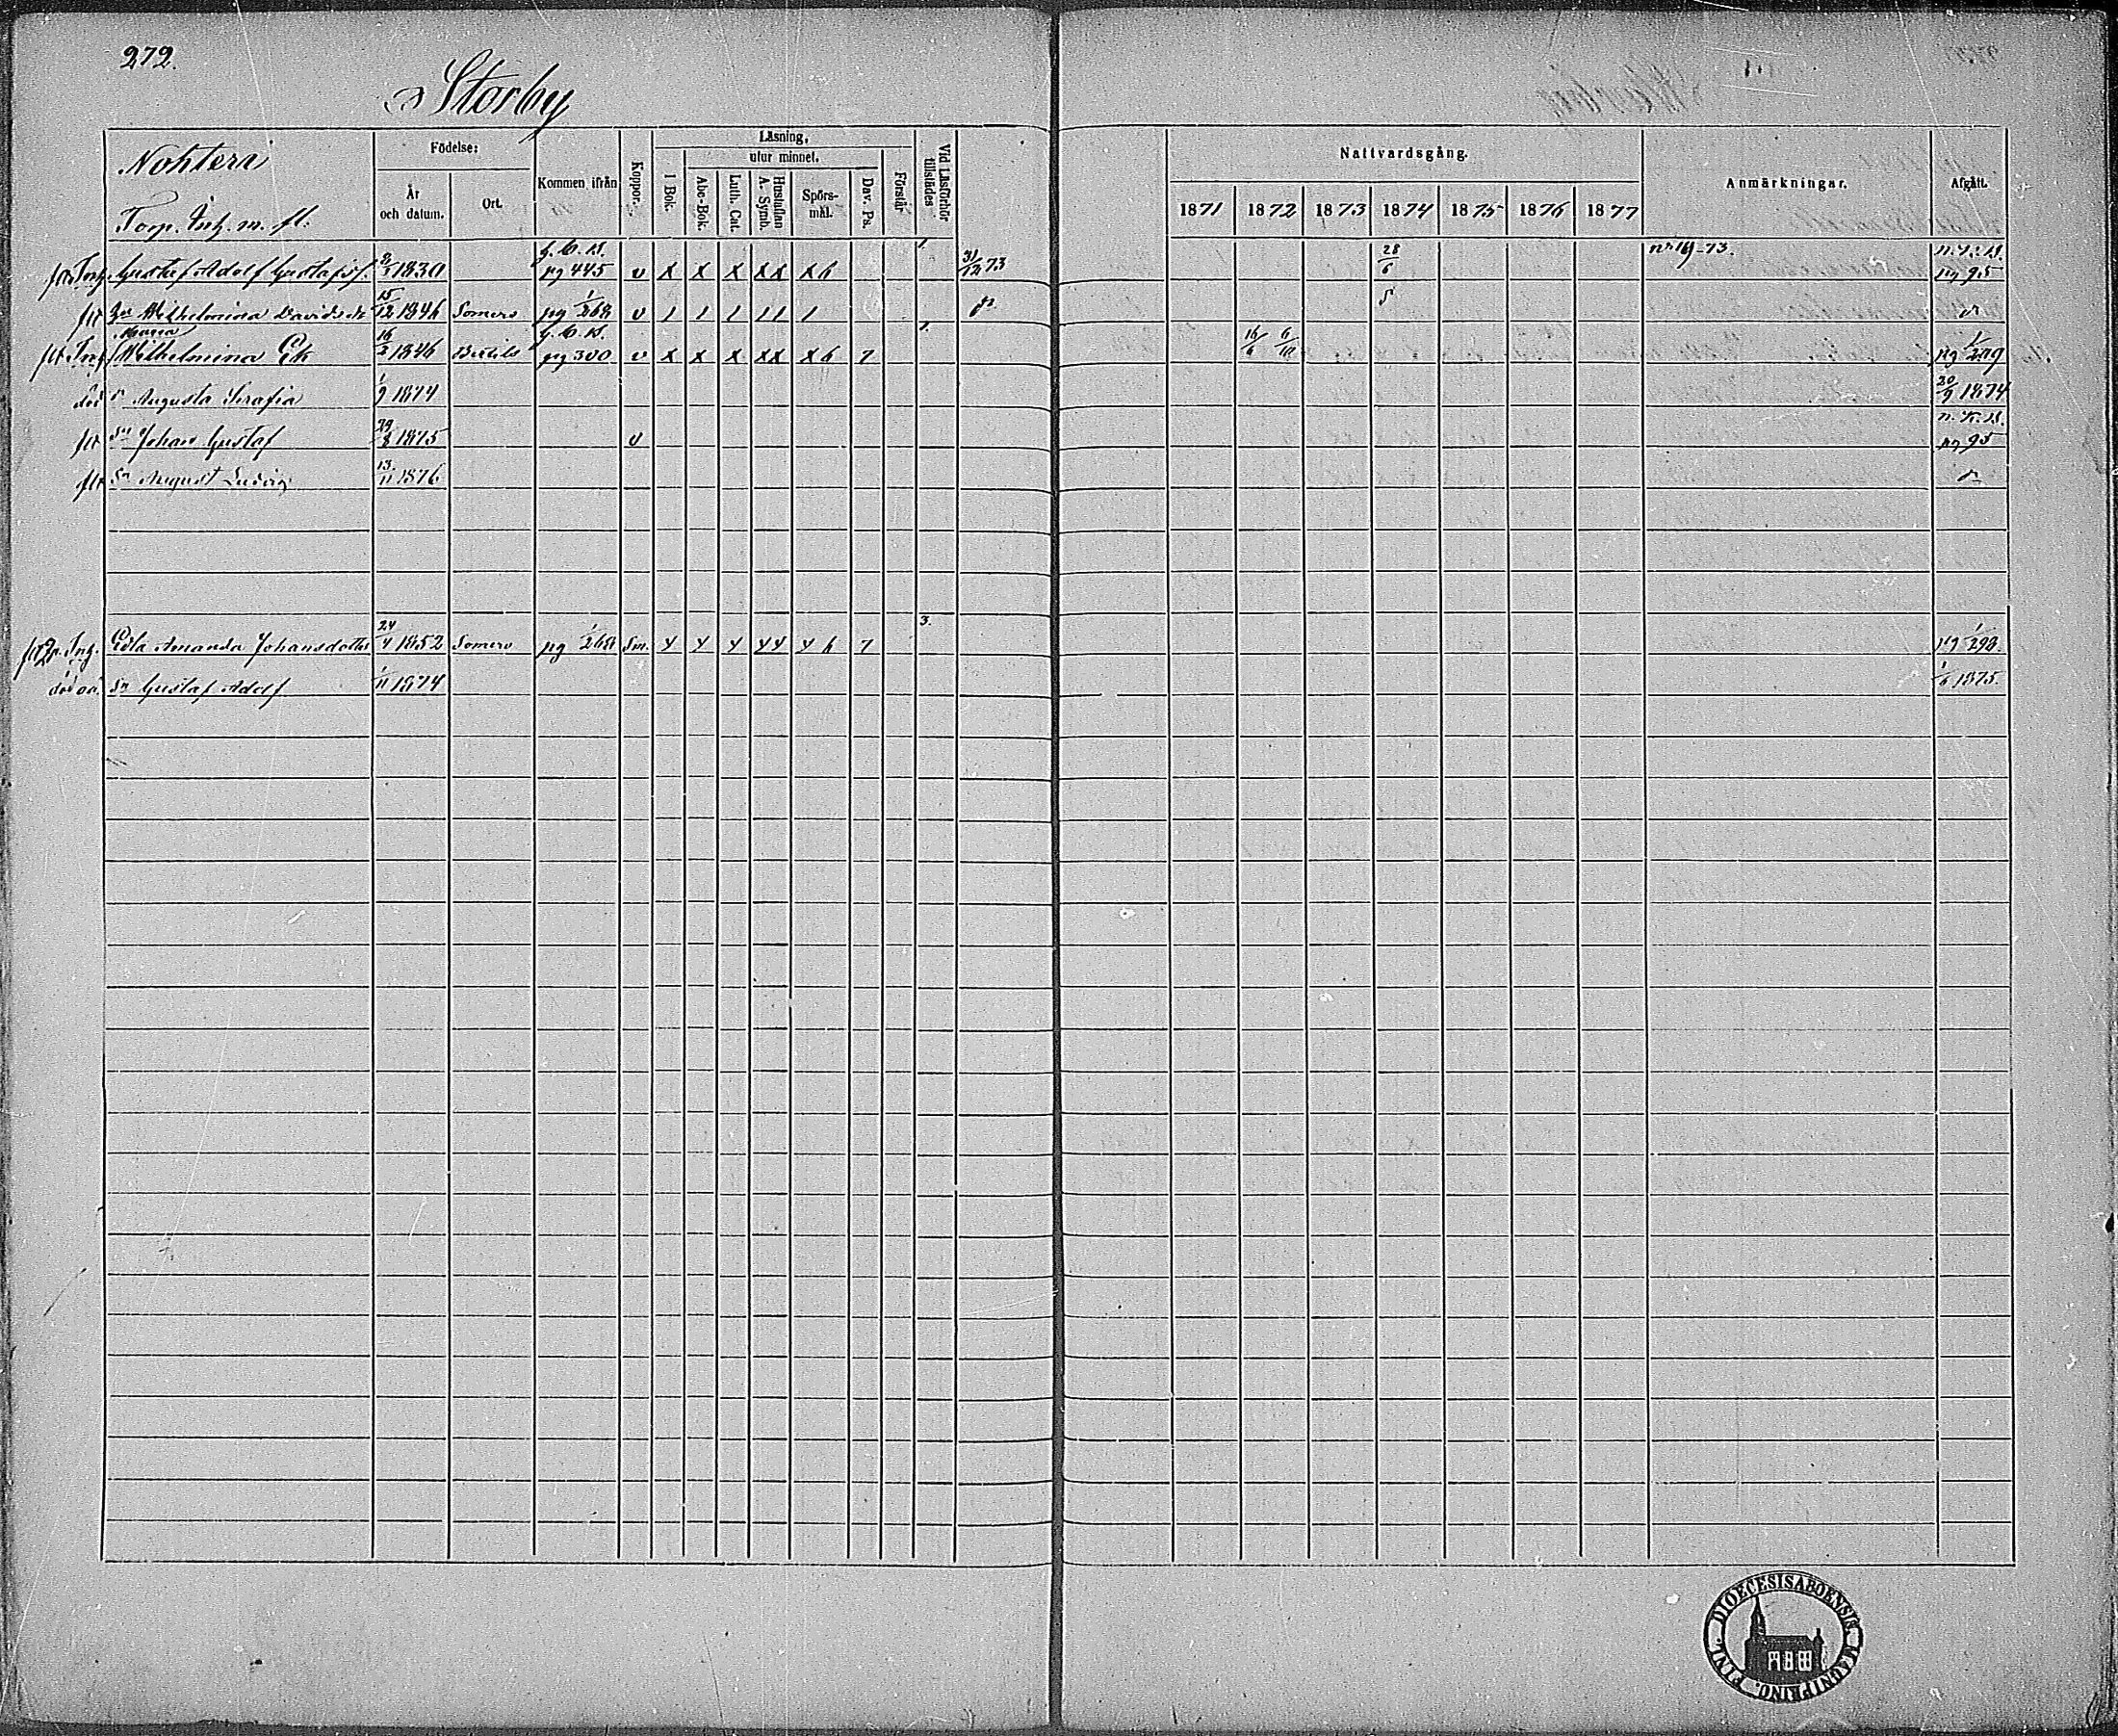 272.
Storby
Nohterä
Torp. Inh. m. fl.
Födelse:
År och datum.
Ort.
Kommen ifrån
Koppor.
Läsning,
I Bok.
utur minnet.
Abc-Bok.
Luth. Cat.
Hustaflan A. Symb.
Spörsmål.
Dav. Ps.
Förstår
Vid Läsförhör tillstädes
Nattvardsgång.
1871 1872 1873 1874 1875 1876 1877
Anmärkningar.
Afgått.
Inh. Gustaf Adolf Gustafss. 1830 g. C. B. pg 445 v x x x xx x6 1. 31/12 73 28/6 n. K. B. pg 95
Wilhelmina Davidsdr 15/12 1846 Somero pg 1/268 v 1 1 1 11 1
Inh. Maria Wilhelmina Ek 16/2 1846 Bertils g. C. B. pg 300 v x x x xx x6 7 1. 16/6 6/10 pg
död Augusta Serafia 1/9 1874 20/9 1874
Sn Johan Gustaf 29/8 1875 v n. K. B. pg 95
Sn August Ludvig 13/11 1876
Inh. Edla Amanda Johansdotter 24/4 1852 Somero pg 1/268 Sm. y y y yy y6 7 3. pg 1/298.
död Sn Gustaf Adolf 1/11 1874 1/6 1875.
DIOECESIS ABOENSIS MAGNI PRINC. FINL.